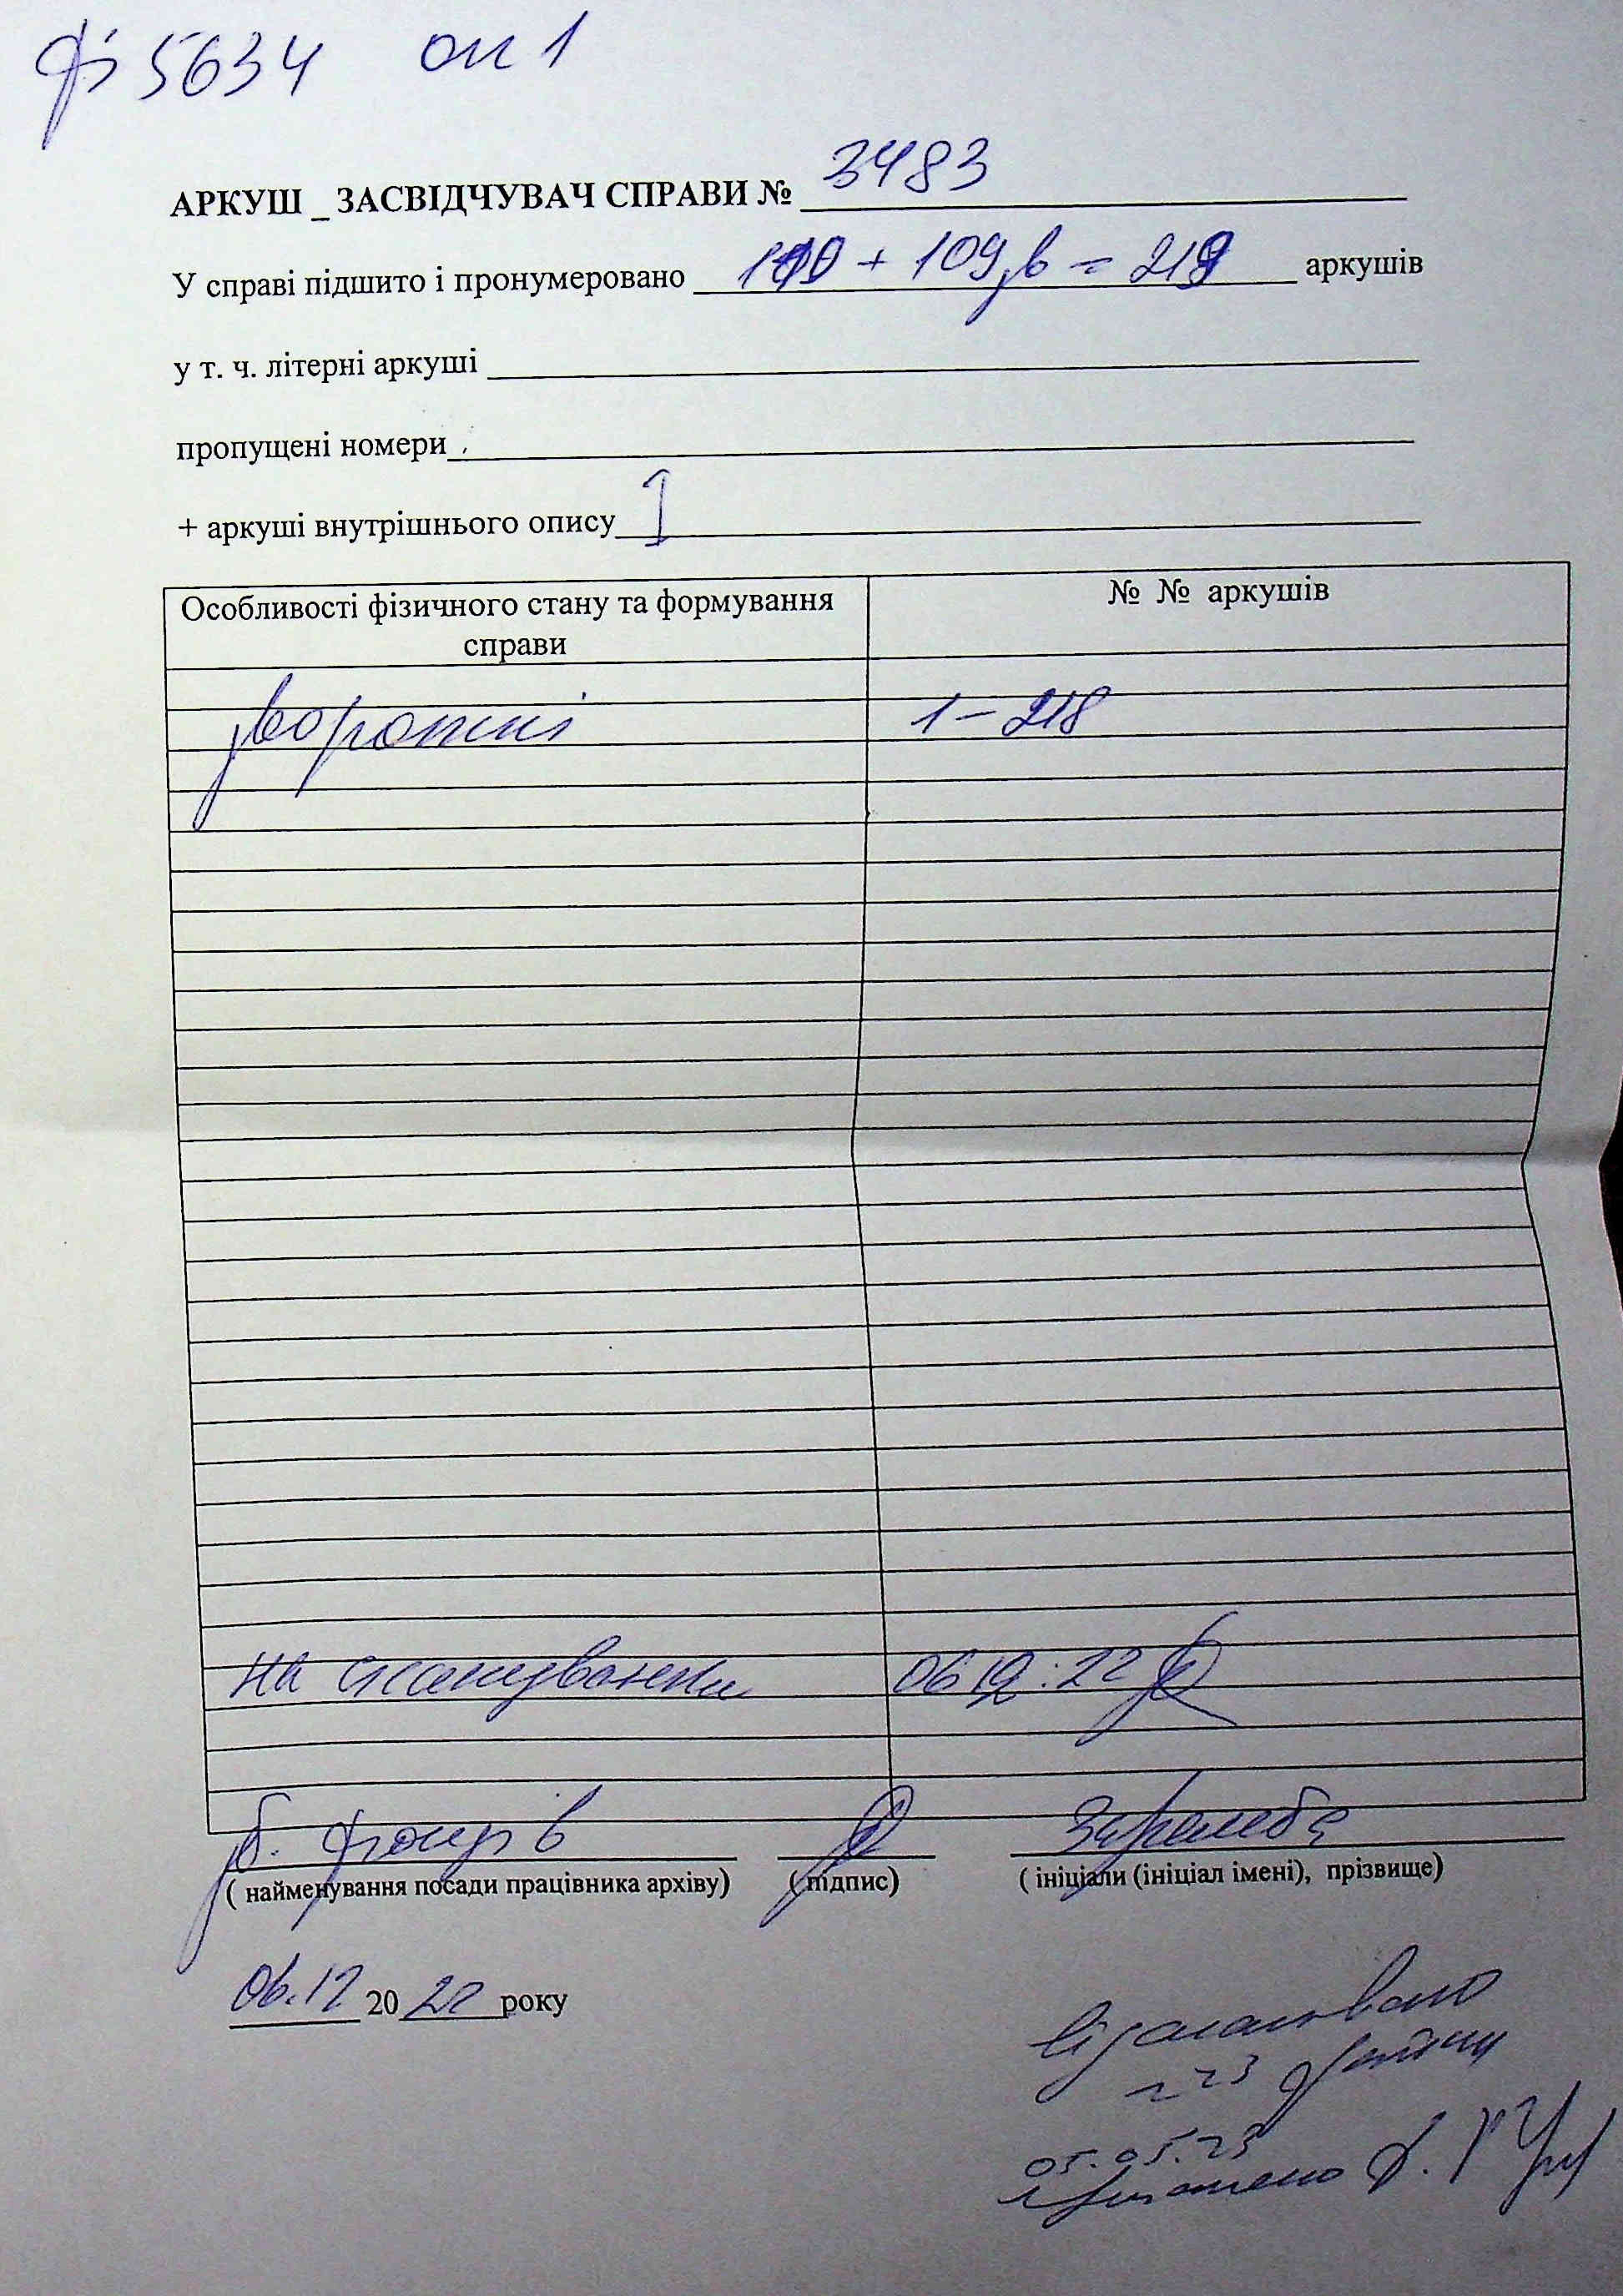 ф 5634 оп 1
АРКУШ _ ЗАСВІДЧУВАЧ СПРАВИ № 3483
У справі підшито і пронумеровано 110 + 109зв = 219 аркушів
у т. ч. літерні аркуші
пропущені номери
+ аркуші внутрішнього опису 1
Особливості фізичного стану та формування справи
№ № аркушів
зворотні 1 – 218
на сканування 06 12. 22
зб. фондів
( найменування посади працівника архіву) ( підпис) ( ініціали (ініціал імені), прізвище)
06.12 20 22 року
Відскановано
223
05.05.23